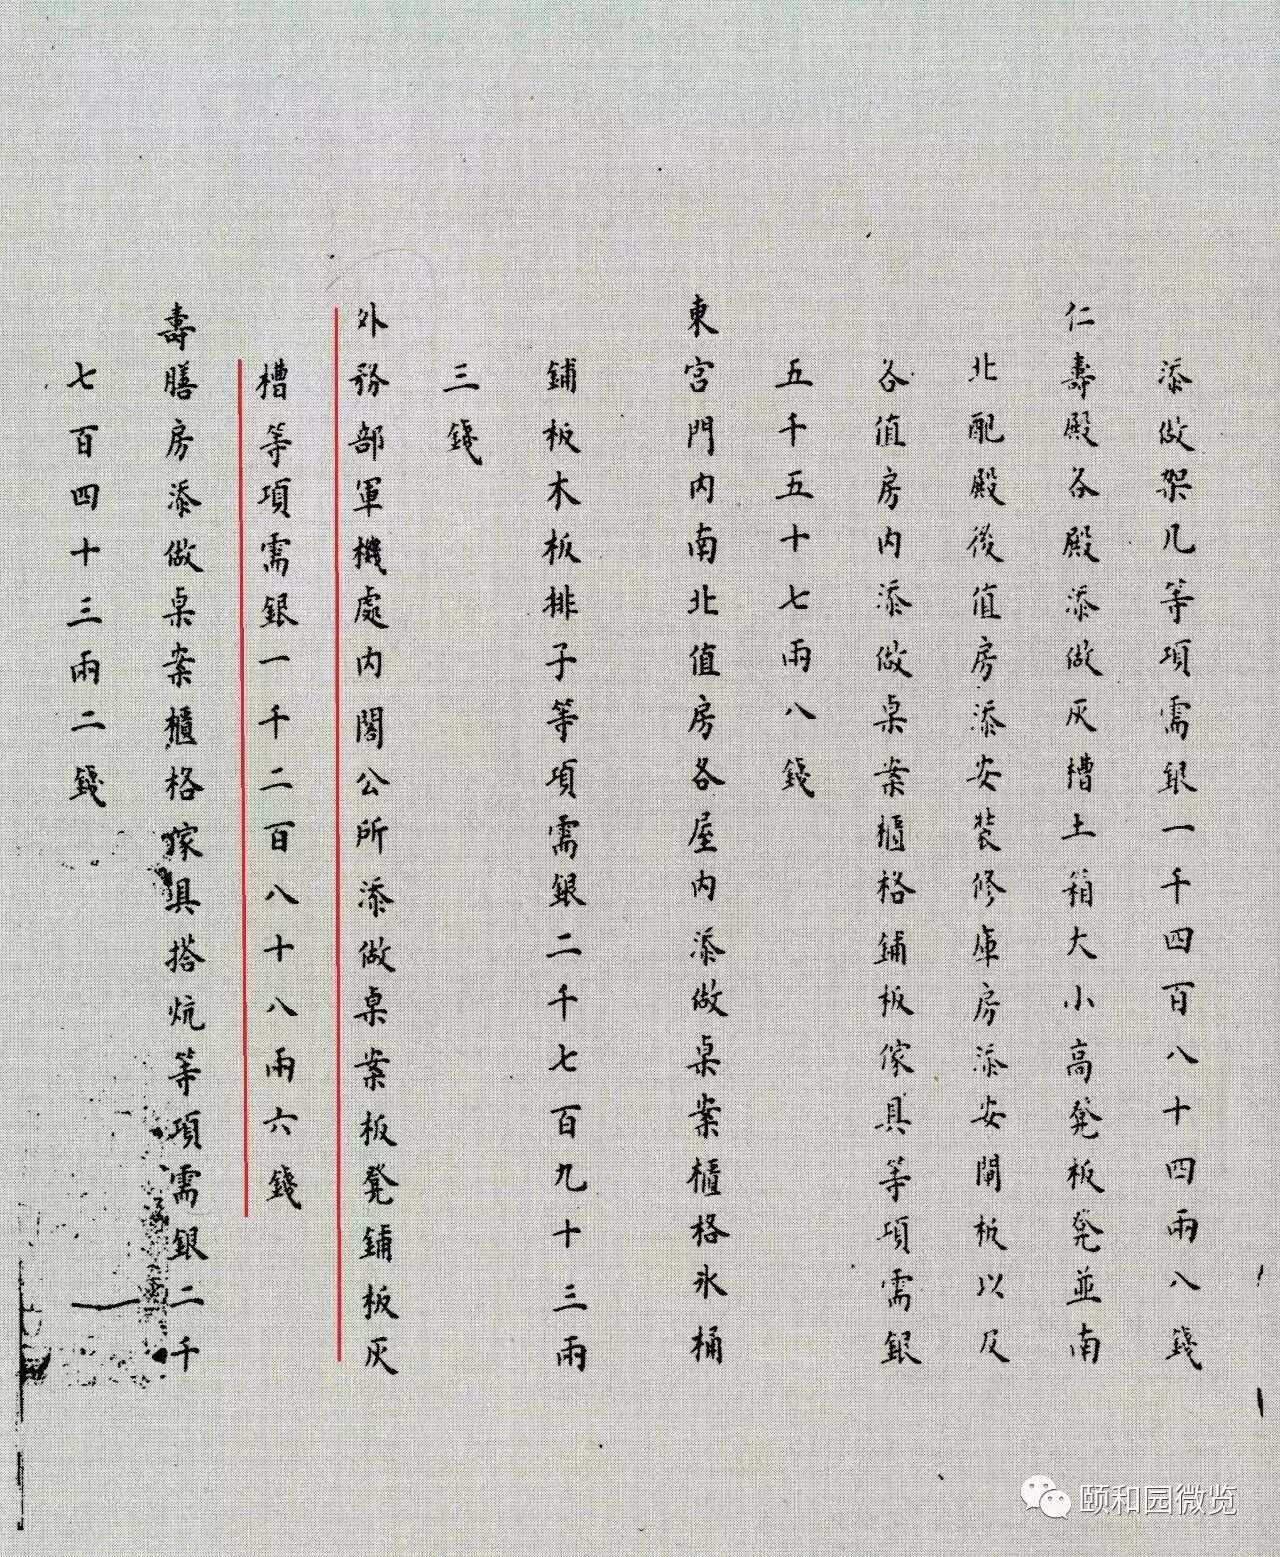 添做架几等項需銀一千四百八十四兩八錢
仁壽殿各殿添做灰槽土箱大小高凳板凳並南
北配殿後值房添安裝修庫房添安閘板以及
各值房內添做桌案櫃格鋪板傢具等項需銀
五千五十七兩八錢
東宮門內南北值房各屋內添做桌案櫃格氷桶
鋪板木板排子等項需銀二千七百九十三兩
三錢
外務部軍機處內閣公所添做桌案板凳鋪板灰
槽等項需銀一千二百八十八兩六錢
壽膳房添做桌案櫃格傢具搭炕等項需銀二千
七百四十三兩二錢
颐和园微览